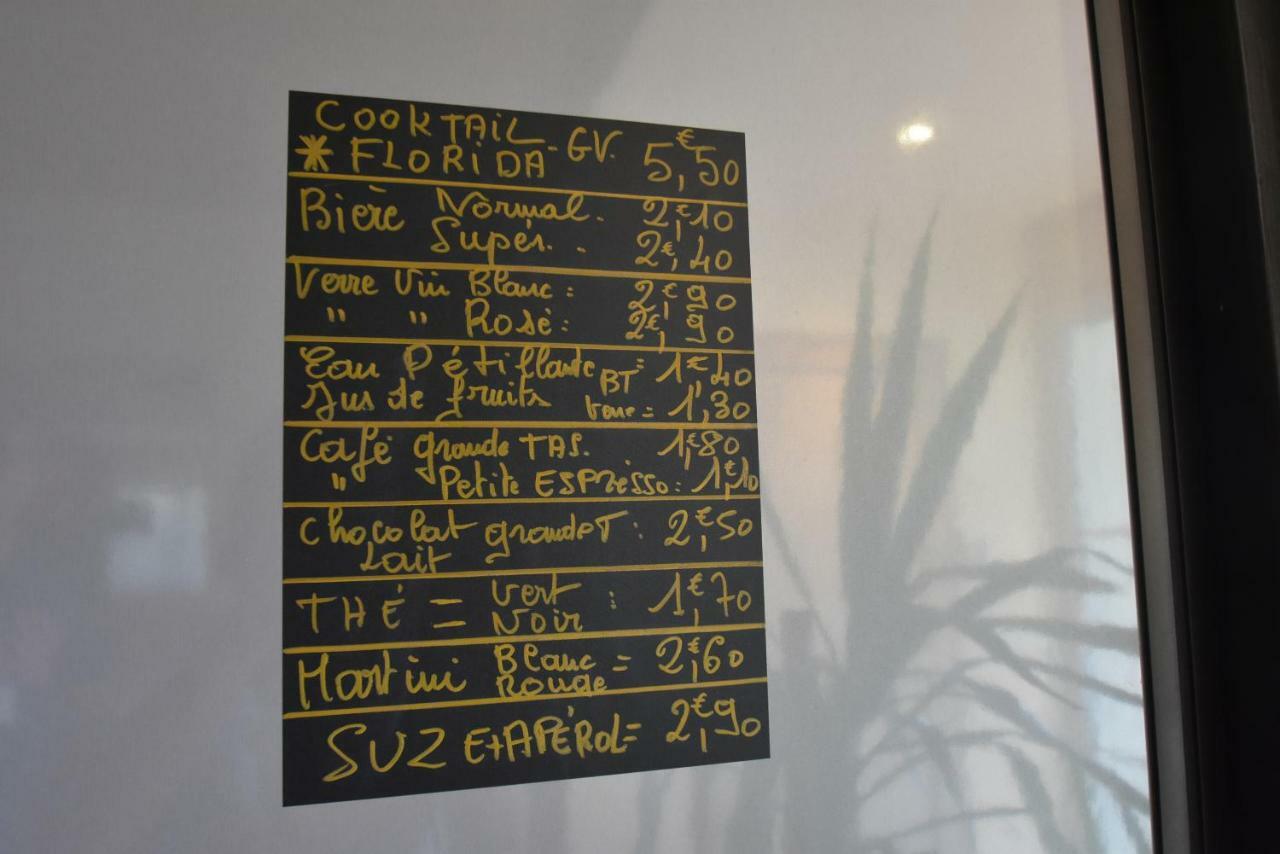 COOKTAIL
* FLORIDA - GV. 5,€50
Bière Normal. 2,€10
Supér. . 2€,40
Verre Vin Blanc : 2,€90
" " Rosé : 2€,90
Eau Pétillante BT = 1,€40
Jus de fruits verre = 1,30
Café grande TAS. 1,€80
" Petite ESPresso : 1,€10
Chocolat grande T : 2,€50
Lait
THÉ = Vert : 1,€70
Noir
Martini Blanc = 2,€60
Rouge
SUZ Et APÉROL = 2,€90